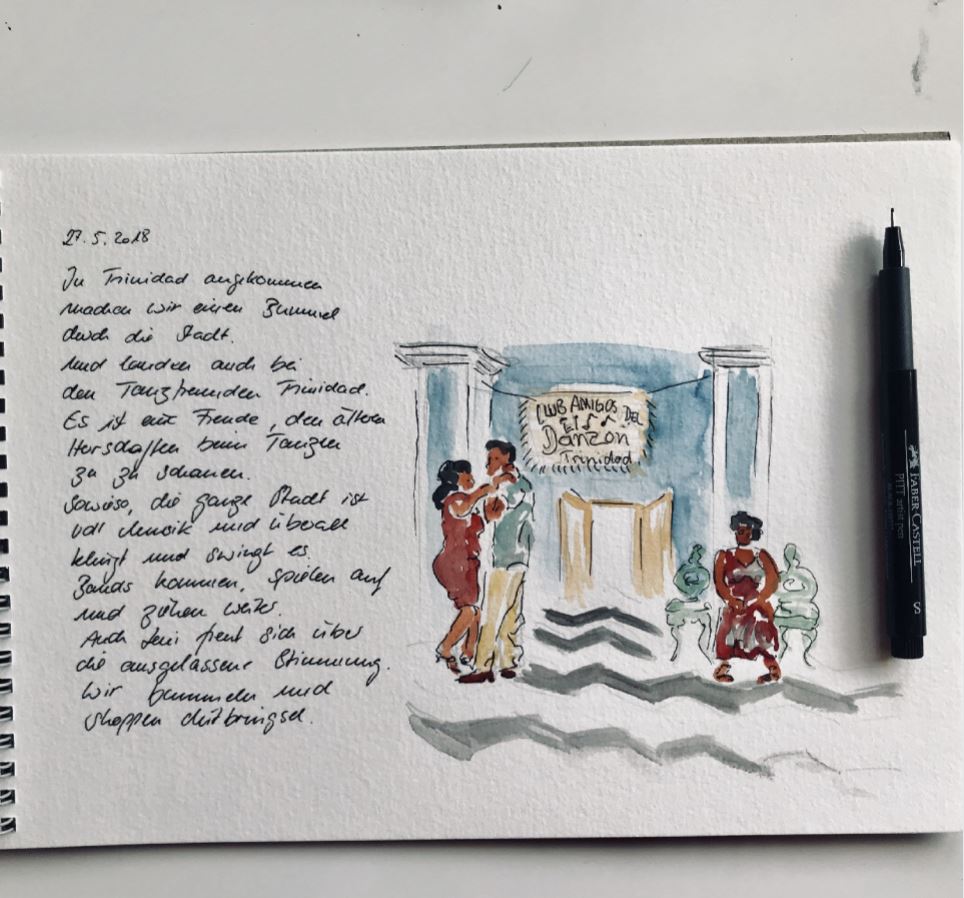 27.5.2018
In Trinidad angekommen
machen wir einen Bummel
durch die Stadt.
Und landen auch bei
den Tanzfreunden Trinidad.
Es ist eine Freude, den älteren
Herschaften beim Tanzen
zu zu schauen.
Sowieso, die ganze Stadt ist
voll Musik und überall
klingt und swingt es.
Bands kommen, spielen auf
und ziehen weiter.
Auch freut sich über
die ausgelassene Stimmung.
Wir bummeln und
shoppen Mitbringsel.
CLUB AMIGOS DEL
Danzon
Trinidad
FABER CASTELL
PITT artist pen
S